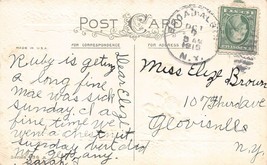 POST CARD
MADE IN U.S.A.
FOR CORRESPONDENCE
FOR ADDRESS
BROADALBIN
OCT
N.Y.
Dear Elize
Ruby is geting
a long fine
Mae was sick
Sunday. I as
fine time we
went a chestnut
Sunday but did
not get any
Sarah
Miss Elizt Brown
107 Third ave
Glovisville
N.Y.